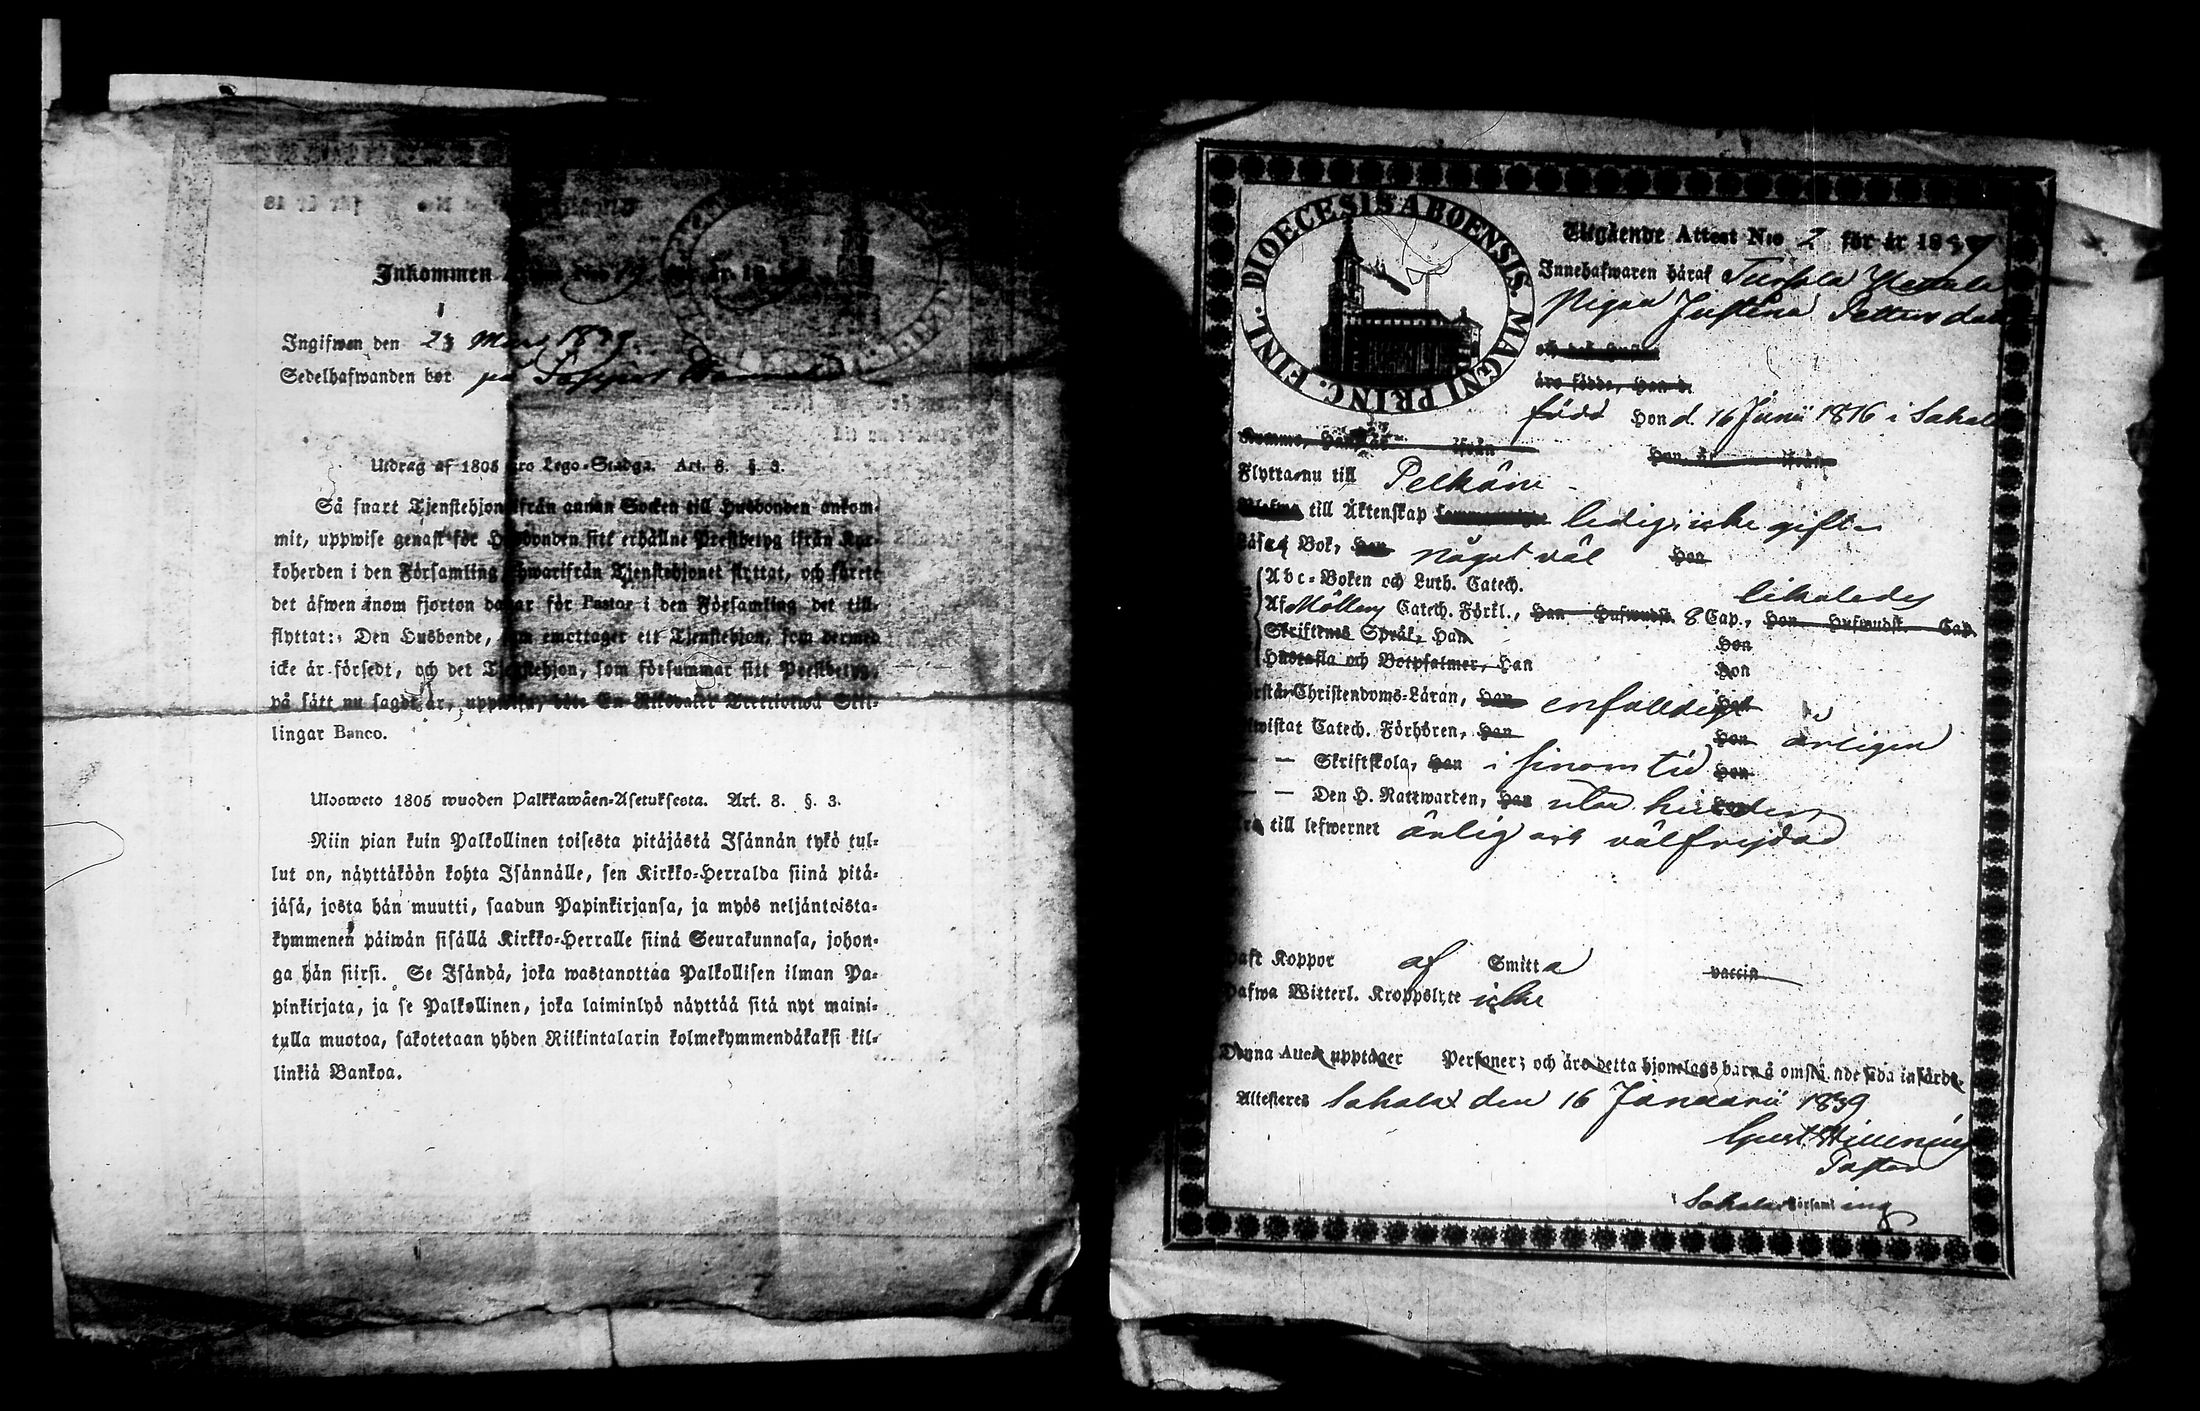 Inkommen
Ingifwen den 23 Mars 1839.
Sedelhafwanden bor på
Utdrag af 1805 års Lego-Stadga. Art. 8. §. 3.
Så snart Tjenstehjon ifrån annan Socken till Husbonden ankom-
mit, uppwise genast för Husbonden sitt erhållne Prestbetyg ifrån Kyr-
koherden i den Församling hwarifrån Tjenstehjonet flyttat, och förete
det äfwen inom fjorton dagar för Pastor i den Församling det till-
flyttat: Den Husbonde, som emottager ett Tjenstehjon, som dermed
icke är försedt, och det Tjenstehjon, som försummar sitt Prestbetyg,
på sätt nu sagdt är, uppwisa, böte En Riksdaler Trettiotwå Skil-
lingar Banco.
Ulosweto 1805 wuoden Palkkawäen-Asetuksesta. Art. 8. §. 3.
Niin pian kuin Palkollinen toisesta pitäjästä Isännän tykö tul-
lut on, näyttäköön kohta Isännälle, sen Kirkko-Herralda siinä pitä-
jäsä, josta hän muutti, saadun Papinkirjansa, ja myös neljäntoista-
kymmenen päiwän sisällä Kirkko-Herralle siinä Seurakunnasa, johon-
ga hän siirsi. Se Isändä, joka wastanottaa Palkollisen ilman Pa-
pinkirjata, ja se Palkollinen, joka laiminlyö näyttää sitä nyt maini-
tulla muotoa, sakotetaan yhden Riikintalarin kolmekymmendäkaksi kil-
linkiä Bankoa.
DIOECESIS ABOENSIS. MAGNI PRINC. FINL.
Utgående Attest N:o 2 för år 1839
Innehafwaren häraf
Pigan Justina Pettersdotter
och dess hustru
äro födde, Han d.
född Hon d. 16 Junii 1816 i Sahal
Komme, Han år ifrån Hon, år ifrån
Flytta nu till Pelkäne
till Äktenskap ledig, icke gift
Bok, Han något väl Hon
Abc-Boken och Luth. Catech. likaledes
Af Möllers Catech. Förkl., Han Hufwudst. 8 Cap., Hon Hufwudst. Cap.
Skriftenes Språk, Han Hon
Hustafla och Botpsalmer, Han Hon
Christendoms-Läran, Han enfaldigt Hon
Catech. Förhören, Han Hon årligen
— — Skriftskola, Han i sinom tid Hon
— — Den H. Nattwarden, Han utan hinder Hon
till lefwernet ärlig och välfrejdad
Haft Koppor af Smitta vaccin
Hafwa Witterl. Kroppslyte icke
Denna Attest upptager Personer; och äro detta hjonelags barn å omstående sida införde.
Attesteres Sahalax den 16 Januarii 1839
Pastor
i Sahalax Församling